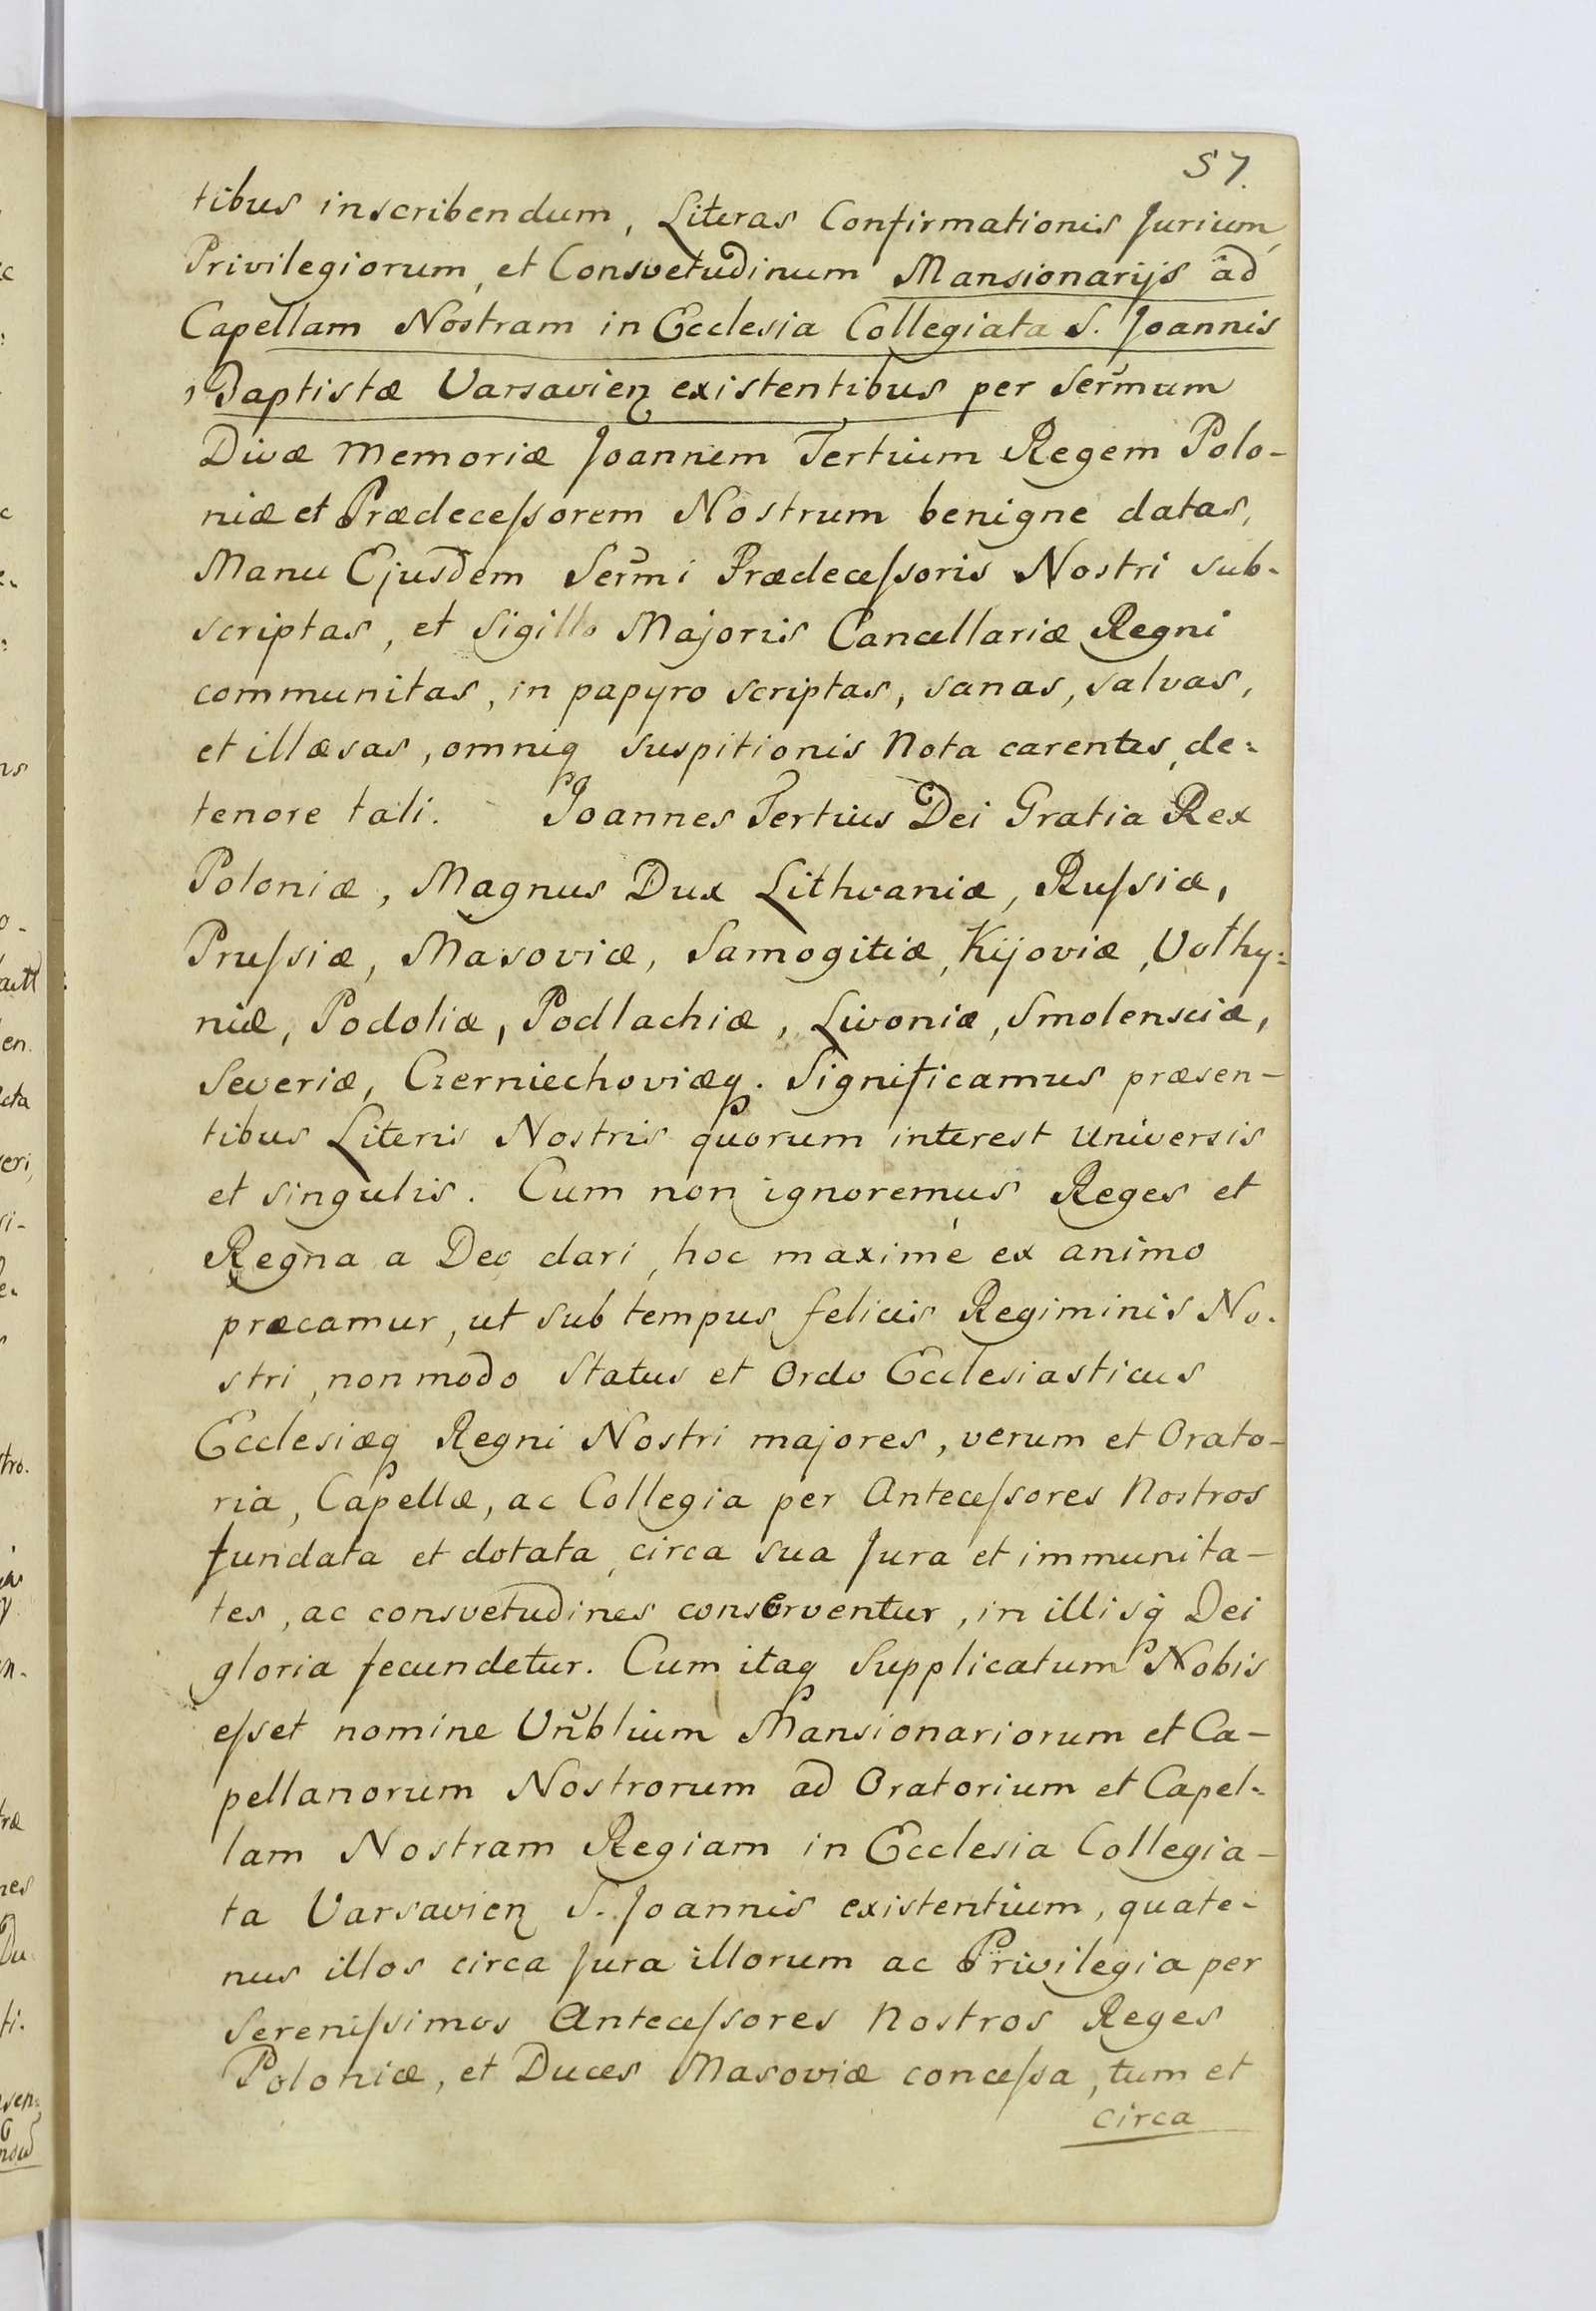 57.
tibus inscribendum, Literas Confirmationis Jurium,
Privilegiorum, et Consvetudinum Mansionarijs ad
Capellam Nostram in Ecclesia Collegiata S. Joannis
Baptistæ Varsavien̄ existentibus per Serm̄um
Divæ memoriæ Joannem Tertium Regem Polo-
niæ et Prædeceſsorem Nostrum benigne datas,
Manu Ejusdem Serm̄i Prædeceſsoris Nostri sub-
scriptas, et Sigillo Majoris Cancellariæ Regni
communitas, in papyro scriptas, sanas, salvas,
et illæsas, omniq; suspitionis nota carentes, de-
tenore tali. - Joannes Tertius Dei Gratia Rex
Poloniæ, Magnus Dux Lithvaniæ, Ruſsiæ,
Pruſsiæ, Masoviæ, Samogitiæ, Kijoviæ, Volhy-
niæ, Podoliæ, Podlachiæ, Livoniæ, Smolensciæ,
Severiæ, Czerniechoviæq;. Significamus præsen-
tibus Literis Nostris quorum interest Universis
et singulis. Cum non ignoremus Reges et
Regna a Deo dari, hoc maximé ex animo
præcamur, ut sub tempus felicis Regiminis No-
stri, non modo Status et Ordo Ecclesiasticus
Ecclesiæq; Regni Nostri majores, verum et Orato-
ria, Capellæ, ac Collegia per Anteceſsores Nostros
fundata et dotata, circa sua Jura et immunita-
tes, ac consvetudines conserventur, in illisq; Dei
gloria fecundetur. Cum itaq; Supplicatum Nobis
eſset nomine Vn̄blium Mansionariorum et Ca-
pellanorum Nostrorum ad Oratorium et Capel-
lam Nostram Regiam in Ecclesia Collegia-
ta Varsavien̄ S. Joannis existentium, quate-
nus illos circa Jura illorum ac Privilegia per
Sereniſsimos Anteceſsores Nostros Reges
Poloniæ, et Duces Masoviæ conceſsa, tum et
circa